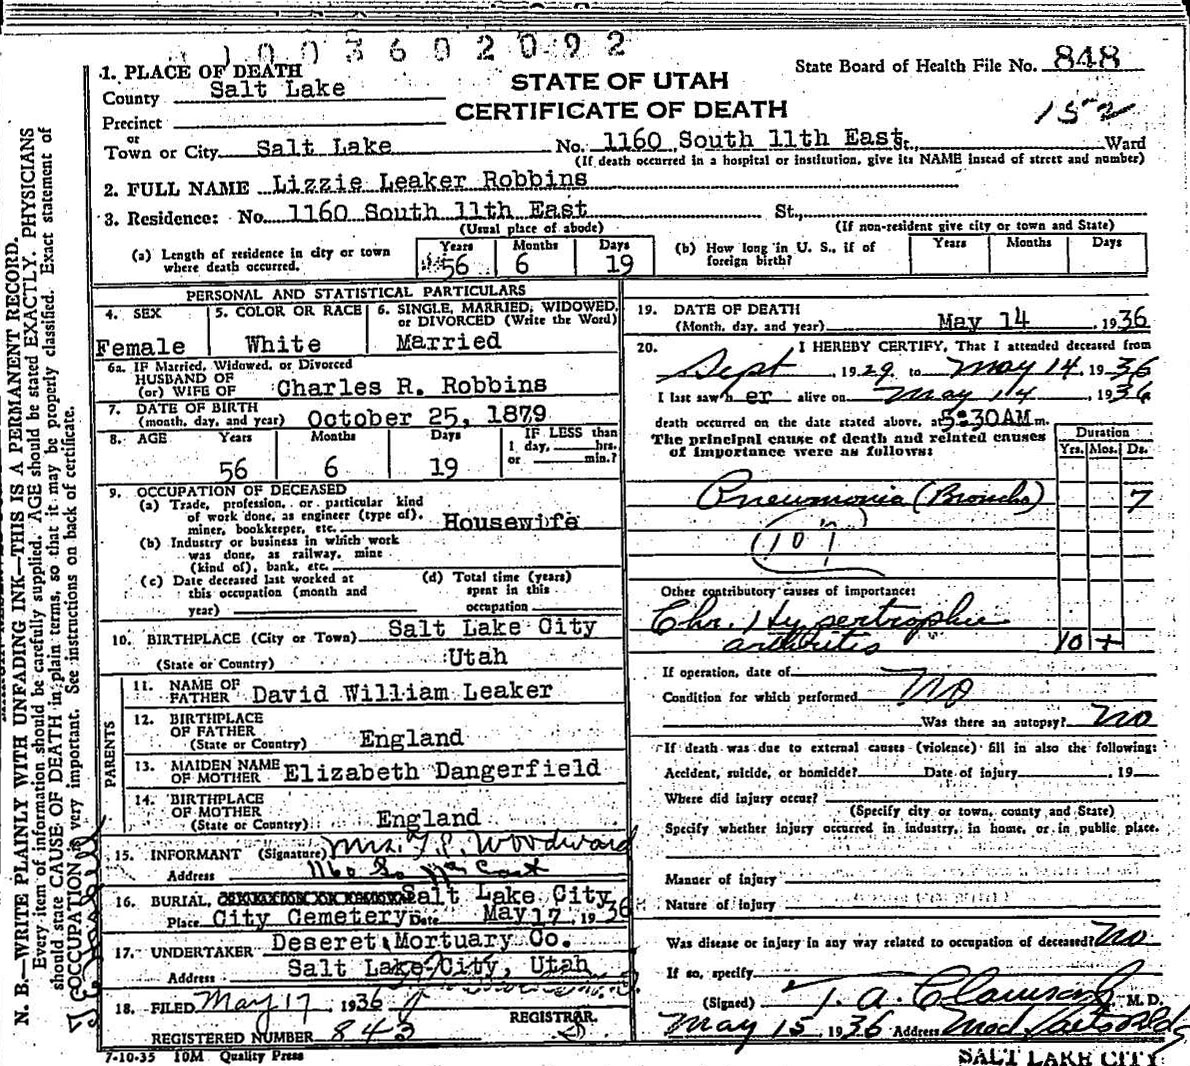 1003602092
1. PLACE OF DEATH
County Salt Lake
STATE OF UTAH
CERTIFICATE OF DEATH
State Board of Health File No. 848
Precinct
or
Town or City Salt Lake No. 1160 South 11th East St., Ward
(If death occurred in a hospital or institution, give its NAME insead of street and number)
2. FULL NAME Lizzie Leaker Robbins
3. Residence: No. 1160 South 11th East St.,
(Usual place of abode) (If non-resident give city or town and State)
(a) Length of residence in city or town where death occurred. Years 56 Months 6 Days 19
(b) How long in U. S., if of foreign birth? Years Months Days
PERSONAL AND STATISTICAL PARTICULARS
4. SEX Female
5. COLOR OR RACE White
6. SINGLE, MARRIED, WIDOWED, or DIVORCED (Write the Word) Married
6a. IF Married, Widowed, or Divorced
HUSBAND OF
(or) WIFE OF Charles R. Robbins
7. DATE OF BIRTH
(month, day, and year) October 25, 1879
8. AGE Years 56 Months 6 Days 19
IF LESS than
1 day, hrs.
or min.?
9. OCCUPATION OF DECEASED
(a) Trade, profession, or particular kind
of work done, as engineer (type of),
miner, bookkeeper, etc. Housewife
(b) Industry or business in which work
was done, as railway, mine
(kind of), bank, etc.
(c) Date deceased last worked at
this occupation (month and
year)
(d) Total time (years)
spent in this
occupation
10. BIRTHPLACE (City or Town) Salt Lake City
(State or Country) Utah
PARENTS
11. NAME OF FATHER David William Leaker
12. BIRTHPLACE OF FATHER
(State or Country) England
13. MAIDEN NAME OF MOTHER Elizabeth Dangerfield
14. BIRTHPLACE OF MOTHER
(State or Country) England
15. INFORMANT (Signature) Mrs. F. S. Woodward
Address 1160 So 11th East
16. BURIAL, Salt Lake City
Place City Cemetery Date May 17, 1936
17. UNDERTAKER Deseret Mortuary Co.
Address Salt Lake City, Utah
18. FILED May 17, 1936
REGISTRAR.
REGISTERED NUMBER 843
7-10-35 10M Quality Press
19. DATE OF DEATH
(Month, day, and year) May 14, 1936
20. I HEREBY CERTIFY, That I attended deceased from
Sept, 1929 to May 14, 1936
I last saw her alive on May 14, 1936
death occurred on the date stated above, at 5:30AM m.
The principal cause of death and related causes
of importance were as follows:
Duration
Yrs. Mos. Ds.
Pneumonia (Broncho) 7
107
Other contributory causes of importance:
Chr. Hypertrophic
arthritis 10 +
If operation, date of
Condition for which performed No
Was there an autopsy? No
If death was due to external causes (violence) fill in also the following:
Accident, suicide, or homicide? Date of injury , 19
Where did injury occur?
(Specify city or town, county and State)
Specify whether injury occurred in industry, in home, or in public place.
Manner of injury
Nature of injury
Was disease or injury in any way related to occupation of deceased? No
If so, specify
(Signed) T. A. Clawson Jr M. D.
May 15, 1936 Address Med Arts Bldg
SALT LAKE CITY
N. B.—WRITE PLAINLY WITH UNFADING INK—THIS IS A PERMANENT RECORD.
Every item of information should be carefully supplied. AGE should be stated EXACTLY. PHYSICIANS
should state CAUSE OF DEATH in plain terms, so that it may be properly classified. Exact statement of
OCCUPATION is very important. See instructions on back of certificate.